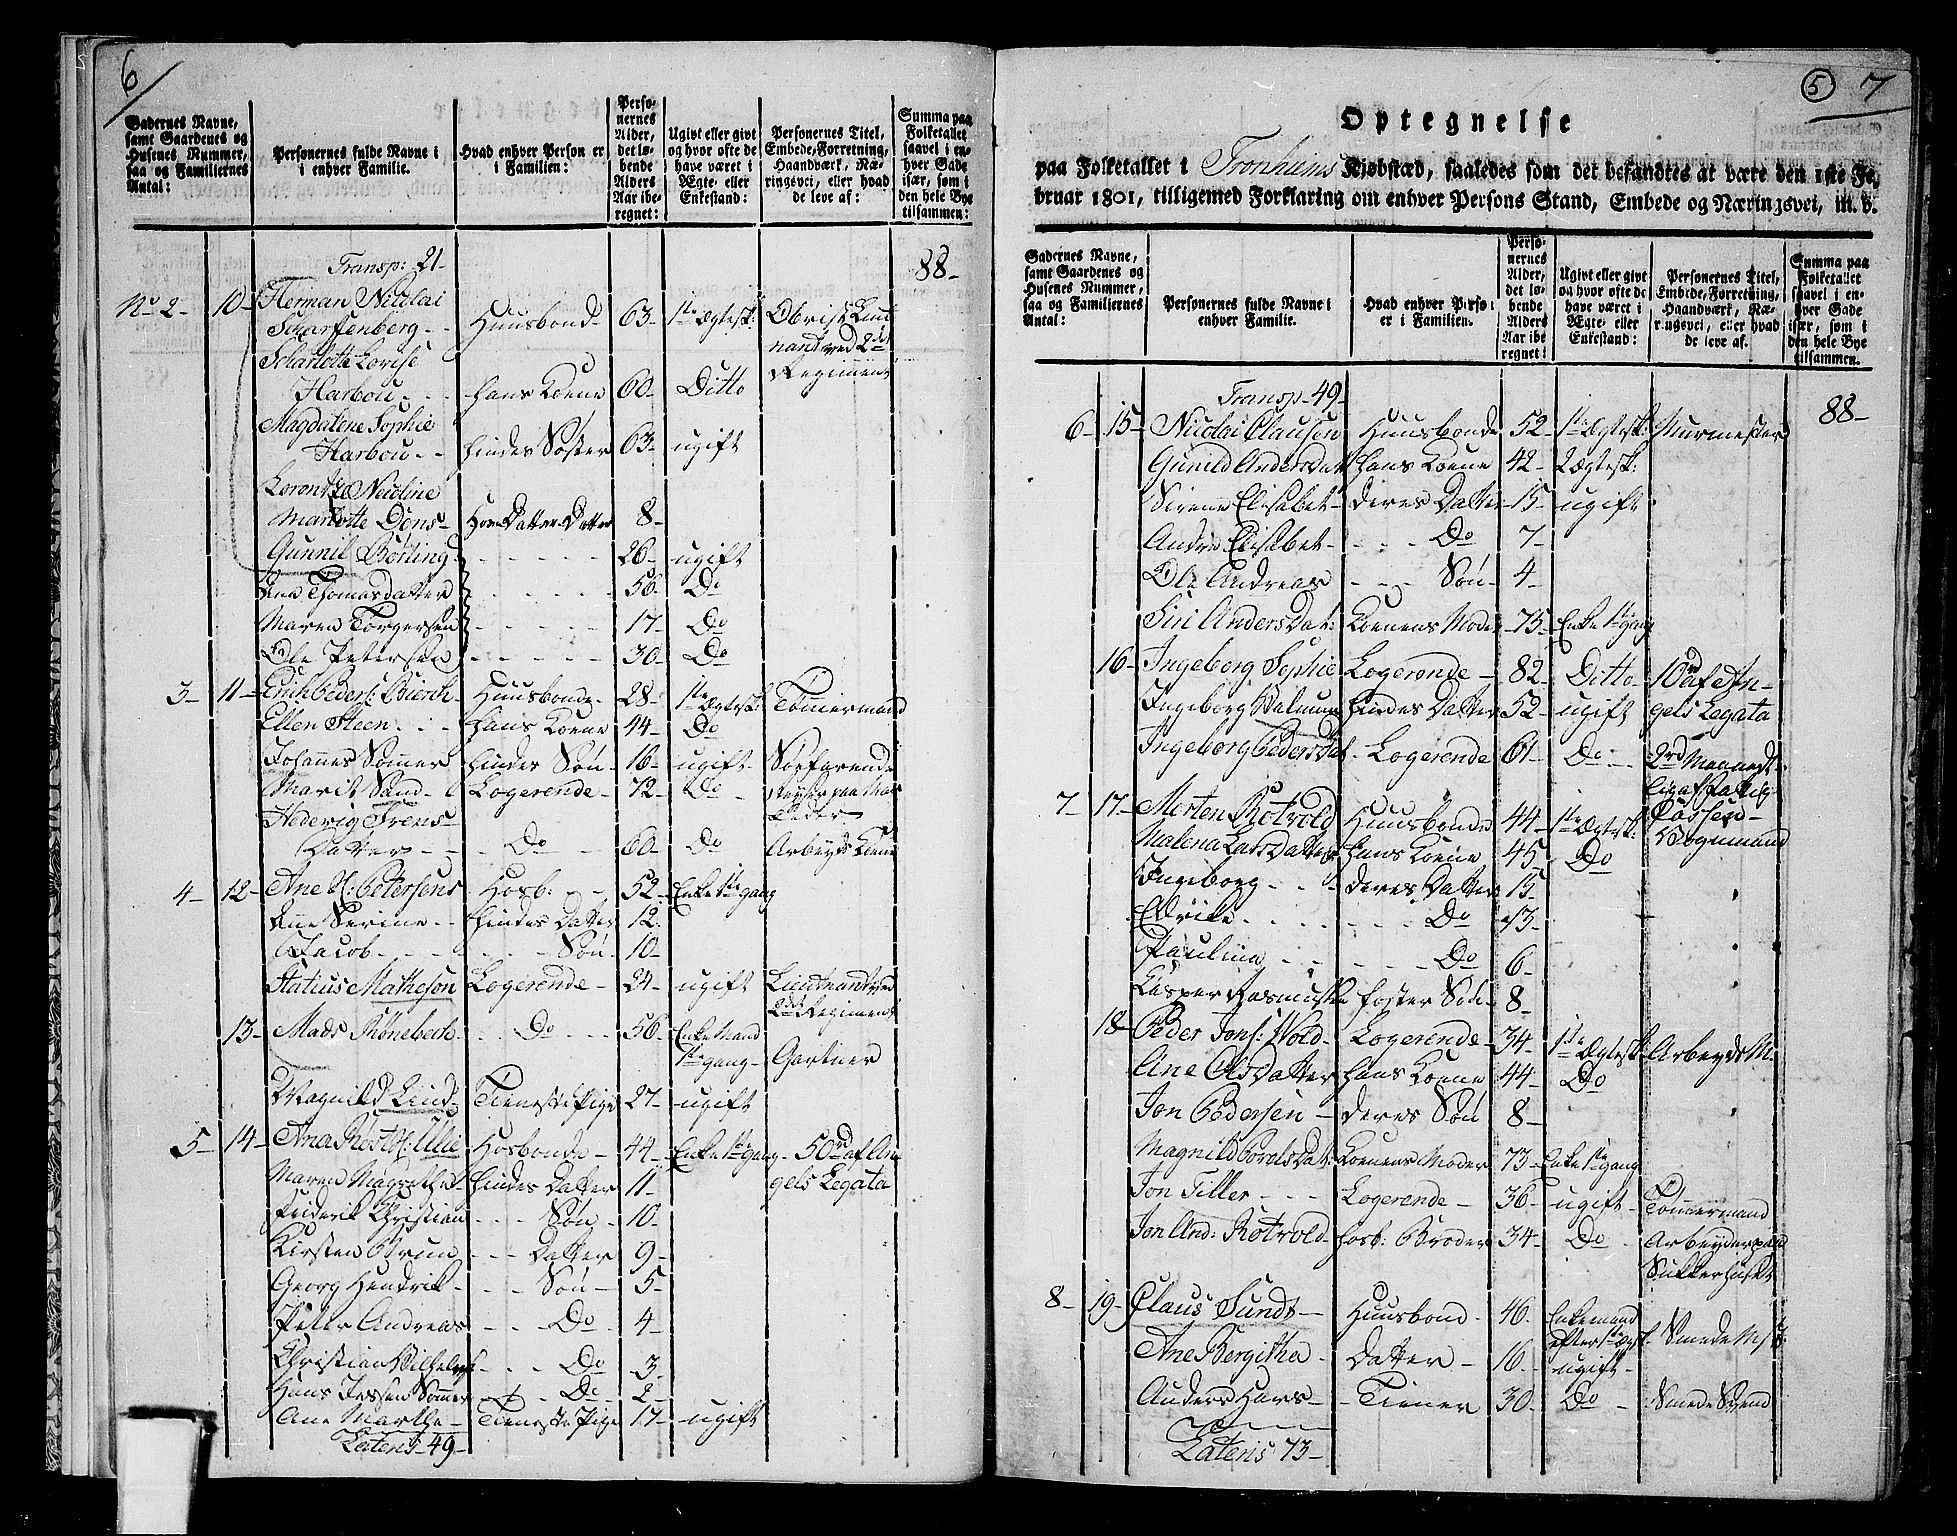 6
Gadernes Navne, samt Gaardenes og Husenes Nummer, saa og Familiernes Antal:
Personernes fulde Navne i i enhver Familie.
Hvad enhver Person er i Familien:
Personernes Alder, det løbende Alders Aar iberegnet:
Ugivt eller givt og hvor ofte de have været i Ægte- eller Enkestand:
Personernes Titel, Embede, Forretning, Haandværk, Næringsvei, eller hvad de leve af:
Summa paa Folketallet saavel i enhver Gade især, som i den hele Bye tilsammen:
Transp: 21- 88-
No 2- 10- Herman Nicolai
Scharffenberg - - Huusbond- 63- 1ste Ægtesk: Obrist Lieut
nant ved 2det
Regiment
Scharlotte Lovise
Harbou - - - hans Koene 60- Ditto
Magdalene Sophie
Harbou - - hindes Søster 63- ugift
Lorentze Nicoline
Marlotte Dons- Datter Datter 8-
Gunnil Bøtling - - - - - 26- ugift
Ane Thomasdatter - - - - - 56- Do
Maren Torgersen - - - - - 17- Do
Ole Petersen - - - - - 30- Do
3- 11- Erich Peders: Bierch Huusbonde- 28- 1ste Ægtesk: Tømmermand
Ellen Steen - - - hans Koene 44- Do
Johannes Sommer hindes Søn- 16- ugift- Søefarende
Marit Sand- Logerende- 72- Do -
Hederig Frens-
Datter - - - Do - - 60- Do Arbeyds Koene
4- 12- Ane H: Petersens Hosb: - - 52- Enke 1ste gang
Ane Serine - - hindes Datter 12-
Jacob - - - - - - Søn- 10-
Statius Matheson Logerende- 24- ugift Lieutnant ved
2det Regiment
13- Mads Rønebech - - Do - - 56- Enke Mand
1ste gang- Gartner
Magnild Lind- Tieneste Pige 27- ugift
5- 14- Ana Røst H: Lilie Hosbonde- 44- Enke 1ste gang- 50rd af An
Maren Magrethe hindes Datter 11- gels Legata
Friderik Christian - - - Søn- 10-
Kirsten Bruun - - - Datter 9-
Georg Hendrik- - - - Søn- 5-
Peter Andreas - - - Do - 4-
Christian Vilhelm - - - Do 3-
Hans Jessen Sommer - - - Do - 2-
Ane Marthe- Tieneste Pige 17- ugift
Lateris 49-
5 7
Optegnelse
paa Folketallet i Tronhiems Kjøbstæd, saaledes som det befandtes at være den 1ste Fe-
bruar 1801, tilligemed Forklaring om enhver Persons Stand, Embede og Næringsvei, m. v.
Gadernes Navne, samt Gaardenes og Husenes Nummer, saa og Familiernes Antal:
Personernes fulde Navne i enhver Familie.
Hvad enhver Person er i Familien.
Personernes Alder, det løbende Alders Aar iberegnet:
Ugivt eller givt og hvor ofte de have været i Ægte- eller Enkestand:
Personernes Titel, Embede, Forretning, Haandværk, Næringsvei, eller hvad de leve af.
Summa paa Folketallet saavel i enhver Gade især, som i den hele Bye tilsammen.
Transp- 49- 88-
6- 15- Nicolai Clausen Huusbonde 52- 1ste Ægtesk: Murmester
Gunild Andersdat hans Koene 42- 2 Ægtesk:
Sirene Elisabet- deres Datter 15- ugift
Andrea Elisabet- - - - Do 7-
Ole Andreas - - - Søn- 4-
Siri Anders Dat: Koenens Moder 75- Enke 1ste gang
16- Ingeborg Sophie Logerende- 82- Ditto- 10rd af et An-
Ingeborg hindes Datter 52- ugift gels Legata
Ingeborg Peders Dat- Logerende 61- Do - 2rd Maanedt-
lig af
7- 17- Morten Rotvold Huusbonde 44- 1ste Ægtesk:
Vognmand
Malena Lars Datter hans Koene 45- Do
Ingeborg - - - deres Datter 15-
- - - - Do 13-
Paulina - - - - - Do 6-
Casper Rasmus foster Søn- 8-
18- Peder Jons: Wold- Logerende- 34- 1ste Ægtesk: Arbeyds M-
Ane Ols Datter hans Koene 44- Do
Jon Pedersen- deres Søn 8-
Magnild Dat: Koenens Moder 73- Enke 1ste gang
Jon Tiller - - - Logerende- 36- ugift- Tømmermand
Jon And: Rotvold- hosb: Broder 34- Do Arbeyder paa
Sukkerhuset
8- 19- Claus Sundt- Huusbond- 46- Enkemand
efter 1ste Ægt. Smede Mst:
Ane Bergitha- Datter- 16- ugift-
Anders Hans- - Tiener 30- Do - Smede Svend
Lateris 73-